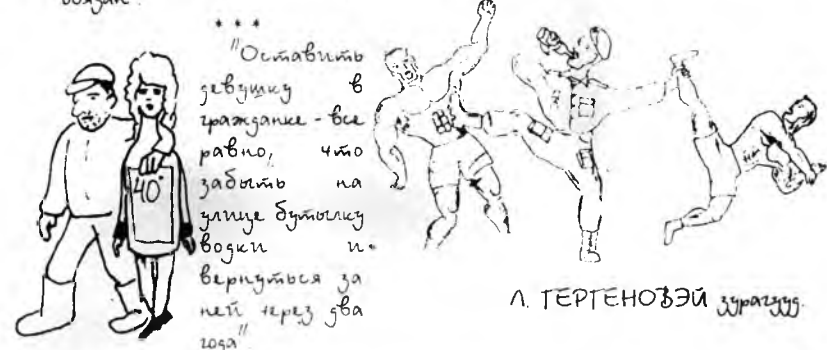 * * *
"Оставить
девушку в
гражданке - все
равно, что
забыть на
улице бутылку
водки и
вернуться за
ней через два
года".
40°
Л. ГЕРГЕНОВЭЙ зурагууд.